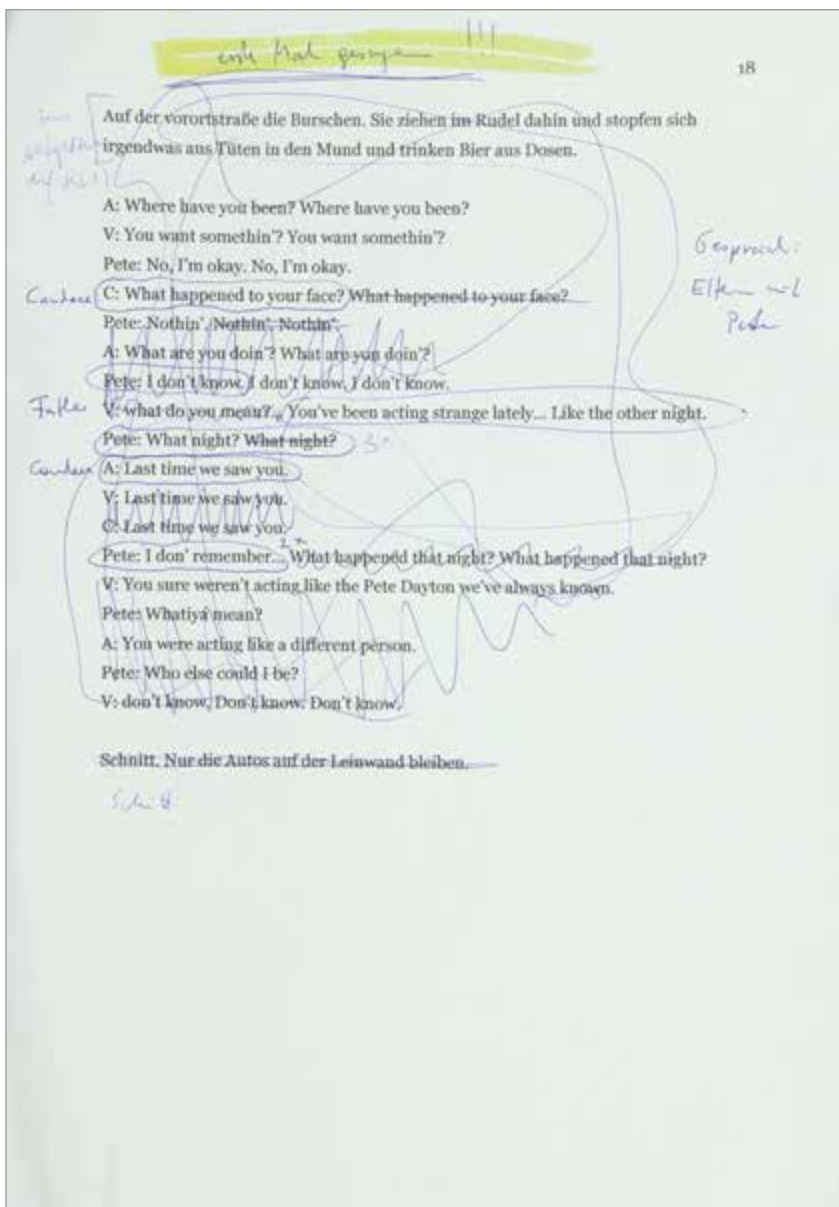 erste Mal gesungen !!!
18
Auf der vorortstraße die Burschen. Sie ziehen im Rudel dahin und stopfen sich
irgendwas aus Tüten in den Mund und trinken Bier aus Dosen.
A: Where have you been? Where have you been?
V: You want somethin'? You want somethin'?
Pete: No, I'm okay. No, I'm okay.
Gespräch:
Eltern mit
Pete
Candace C: What happened to your face? What happened to your face?
Pete: Nothin'. Nothin'. Nothin'.
A: What are you doin'? What are you doin'?
Pete: I don't know. I don't know. I don't know.
V: what do you mean?.. You've been acting strange lately... Like the other night.
Pete: What night? What night?
Candace A: Last time we saw you.
V: Last time we saw you.
C: Last time we saw you.
Pete: I don' remember... What happened that night? What happened that night?
V: You sure weren't acting like the Pete Dayton we've always known.
Pete: Whatiya mean?
A: You were acting like a different person.
Pete: Who else could I be?
V: don't know. Don't know. Don't know.
Schnitt. Nur die Autos auf der Leinwand bleiben.
Schnitt